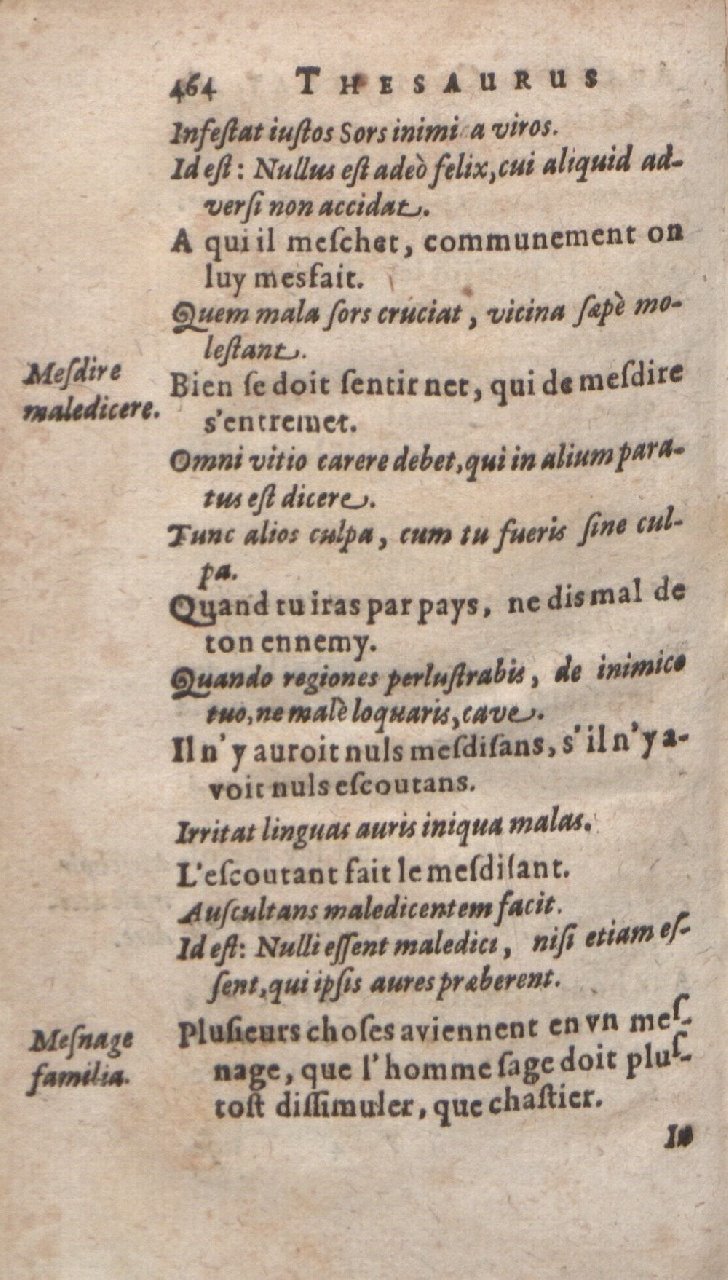 464 THESAURUS
Infeſtat iuſtos Sors inimi a viros.
Id eſt: Nullus eſt adeò felix, cui aliquid ad-
verſi non accidat.
A qui il meſchet, communement on
luy mesfait.
Quem mala ſors cruciat, vicina ſæpè mo-
leſtant.
Meſdire
maledicere.
Bien ſe doit ſentir net, qui de meſdire
s'entremet.
Omni vitio carere debet, qui in alium para-
tus eſt dicere.
Tunc alios culpa, cum tu fueris ſine cul-
pa.
Quand tu iras par pays, ne dis mal de
ton ennemy.
Quando regiones perluſtrabis, de inimico
tuo, ne malè loquaris, cave.
Il n'y auroit nuls meſdiſans, s'il n'y a-
voit nuls eſcoutans.
Irritat linguas auris iniqua malas.
L'eſcoutant fait le meſdiſant.
Auſcultans maledicentem facit.
Id eſt: Nulli eſſent maledici, niſi etiam eſ-
ſent, qui ipſis aures præberent.
Meſnage
familia.
Pluſieurs choſes aviennent en vn meſ-
nage, que l'homme ſage doit pluſ-
toſt diſſimuler, que chaſtier.
In